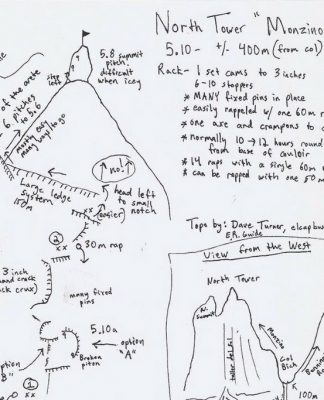 North Tower "Monzino
5.10- +/- 400m (from col)
Rack- 1 set cams to 3 inches
6-10 stoppers
* MANY fixed pins in place
* easily rappeled w/ one 60m r
* one axe and crampons to c
* normally 10→12 hours round
from base of couloir
* 14 raps with a single 60m
* can be rapped with one 50 m
Topo by: Dave Turner, elcapbu
View from the West
North Tower
N. Summit
Monzino
Col
Bich
100m
5.8 summit
pitch-
difficult
when icey
step
left
of the arete
6 pitches
to 5.6
mostly easy
many ways to go
↑ no! ↑
head left
to small
notch
(easier)
Large ledge
system
150m
2
xx
30m rap
3 inch
hand crack
crux)
many fixed
pins
5.10a
option
"A"
Broken
piton
option
B"
1
xx